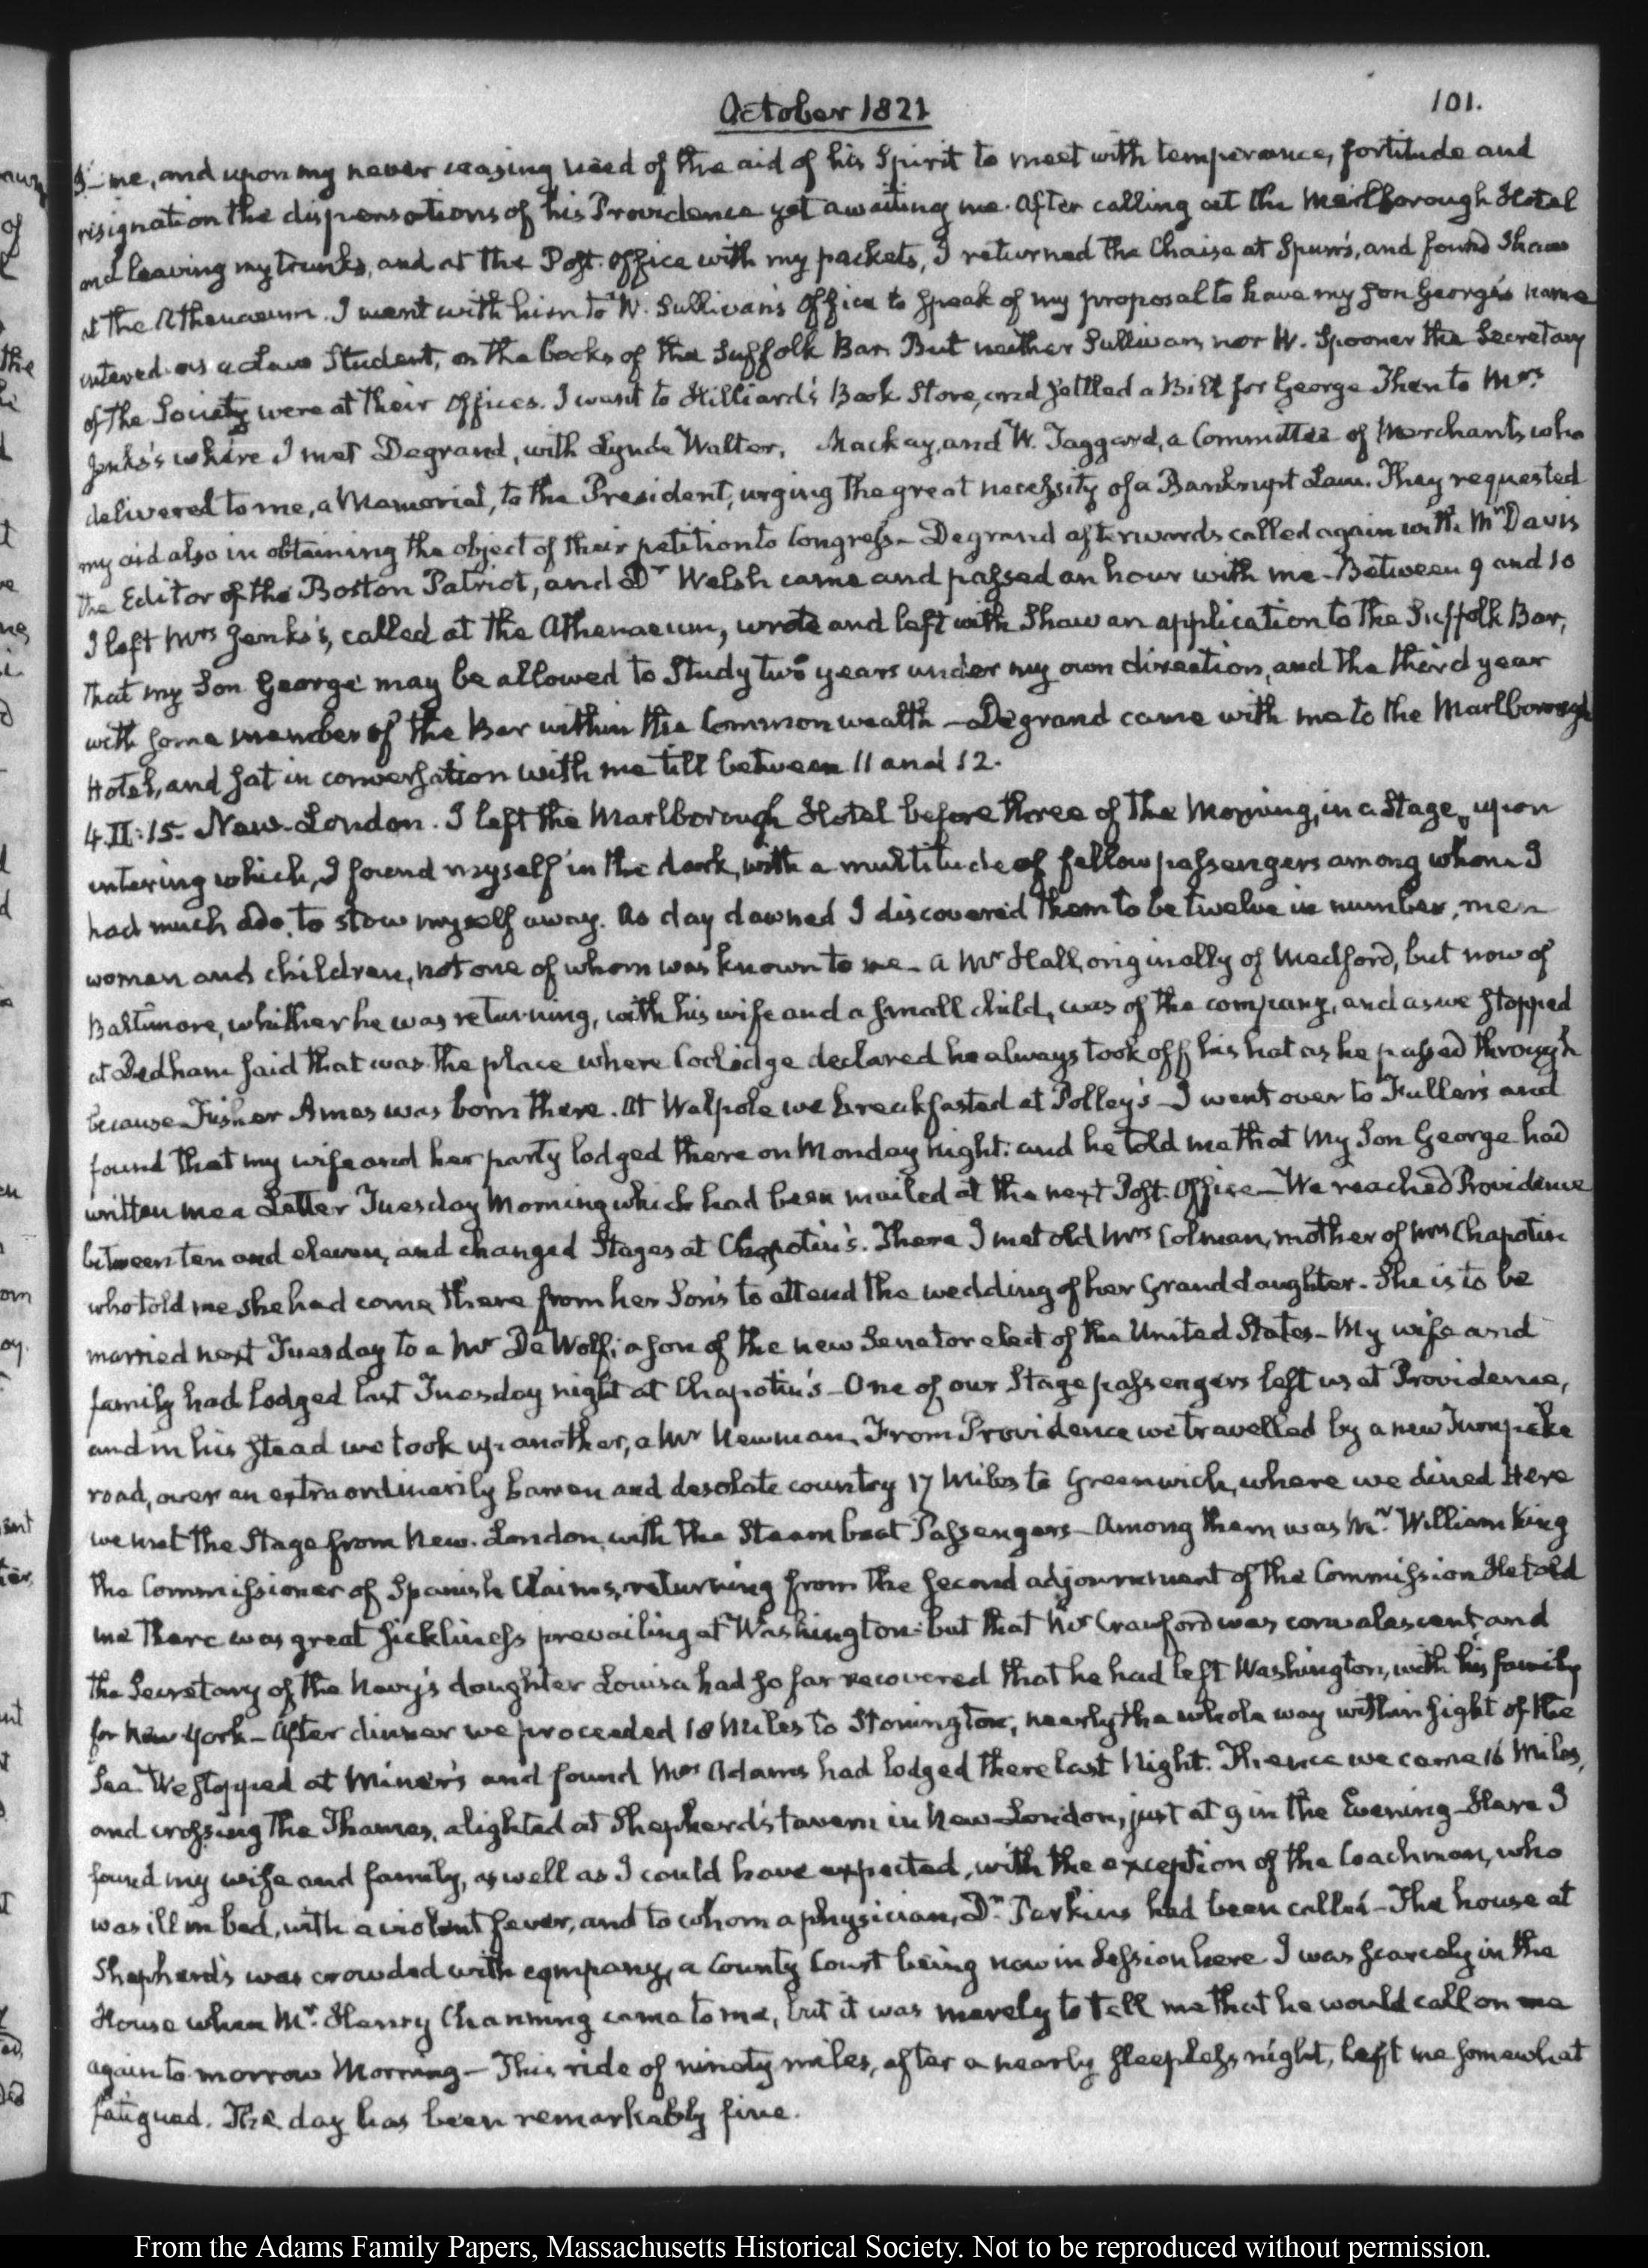 October 1821
101.
me, and upon my never ceasing need of the aid of his Spirit to meet with temperance, fortitude and
resignation the dispensations of his Providence yet awaiting me. After calling at the Marlborough Hotel
and leaving my trunks, and at the Post-Office with my packets, I returned the Chaise at Spurr's, and found Shaw
at the Athenaeum. I went with him to W. Sullivan's Office to speak of my proposal to have my Son George's name
entered as a Law Student, on the books of the Suffolk Bar. But neither Sullivan, nor W. Spooner the Secretary
of the Society were at their Offices. I went to Hilliard's Book Store, and settled a Bill for George. Then to Mrs.
Jenks's where I met Degrand, with Lynde Walter, Mackay, and W. Taggard, a Committee of Merchants who
delivered to me, a Memorial, to the President, urging the great necessity of a Bankrupt Law. They requested
my aid also in obtaining the object of their petition to Congress- Degrand afterwards called again with Mr. Davis
the Editor of the Boston Patriot, and Dr Welsh came and passed an hour with me- Between 9 and 10
I left Mrs Jenks's, called at the Athenaeum, wrote and left with Shaw an application to the Suffolk Bar,
that my Son George may be allowed to Study two years under my own direction, and the third year
with some member of the Bar within the Commonwealth- Degrand came with me to the Marlborough
Hotel, and sat in conversation with me till between 11 and 12.
4. II:15. New-London. I left the Marlborough Hotel before three of the Morning, in a Stage, upon
entering which, I found myself in the dark, with a multitude of fellow passengers among whom I
had much ado, to stow myself away. As day dawned I discovered them to be twelve in number, men
women and children, not one of whom was known to me- A Mr Hall, originally of Medford, but now of
Baltimore, whither he was returning, with his wife and a small child, was of the company, and as we stopped
at Dedham said that was the place where Coolidge declared he always took off his hat as he passed through
because Fisher Ames was born there. At Walpole we breakfasted at Polley's- I went over to Fuller's and
found that my wife and her party lodged there on Monday night: and he told me that My Son George had
written me a Letter Tuesday Morning which had been mailed at the next Post-Office- We reached Providence
between ten and eleven, and changed Stages at Chapotin's. There I met old Mrs Colman, mother of Mrs Chapotin
who told me she had come there from her Son's to attend the wedding of her Granddaughter- She is to be
married next Tuesday to a Mr De Wolf; a son of the new Senator elect of the United States- My wife and
family had lodged last Tuesday night at Chapotin's- One of our Stage passengers left us at Providence,
and in his stead we took up another, a Mr Newman. From Providence we travelled by a new Turnpike
road, over an extraordinarily barren and desolate country 17 Miles to Greenwich, where we dined Here
we met the Stage from New-London, with the Steam boat Passengers- Among them was Mr. William King
the Commissioner of Spanish Claims, returning from the second adjournment of the Commission He told
me there was great sickliness prevailing at Washington: but that Mr Crawford was convalescent and
the Secretary of the Navy's daughter Louisa had so far recovered that he had left Washington, with his family
for New York- After dinner we proceeded 18 Miles to Stonington, nearly the whole way within sight of the
Sea. We stopped at Miner's and found Mrs Adams had lodged there last Night. Thence we came 16 Miles,
and crossing the Thames, alighted at Shepherd's tavern in New-London, just at 9 in the Evening- Here I
found my wife and family, as well as I could have expected, with the exception of the Coachman, who
was ill in bed, with a violent fever, and to whom a physician, Dr. Perkins had been called- The house at
Shepherd's was crowded with company, a County Court being now in Session here I was scarcely in the
House when Mr. Henry Channing came to me, but it was merely to tell me that he would call on me
again to-morrow Morning- This ride of ninety miles, after a nearly sleepless night, left me somewhat
fatigued. The day has been remarkably fine.
From the Adams Family Papers, Massachusetts Historical Society. Not to be reproduced without permission.